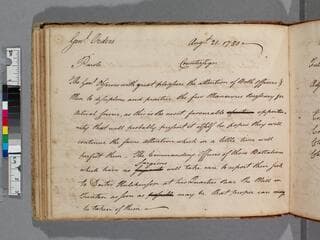 Genl. Orders Augt 21. 1780
Parole Countersign
The Genl. Observes with great pleasure the attention of Both officers &
Men to discipline and practice, the few Manoeuvres Necessary for
actual service, as this is the most favourable opportu-
nity that will probably present it self he hopes they will
continue the same attention which in a little time will
perfect them. The Commanding officers of those Battalions
Surgions
which have no will take care to report their sick
to Doctor at his Quarters near the Mill in
as soon as may be that proper care may
be taken of them